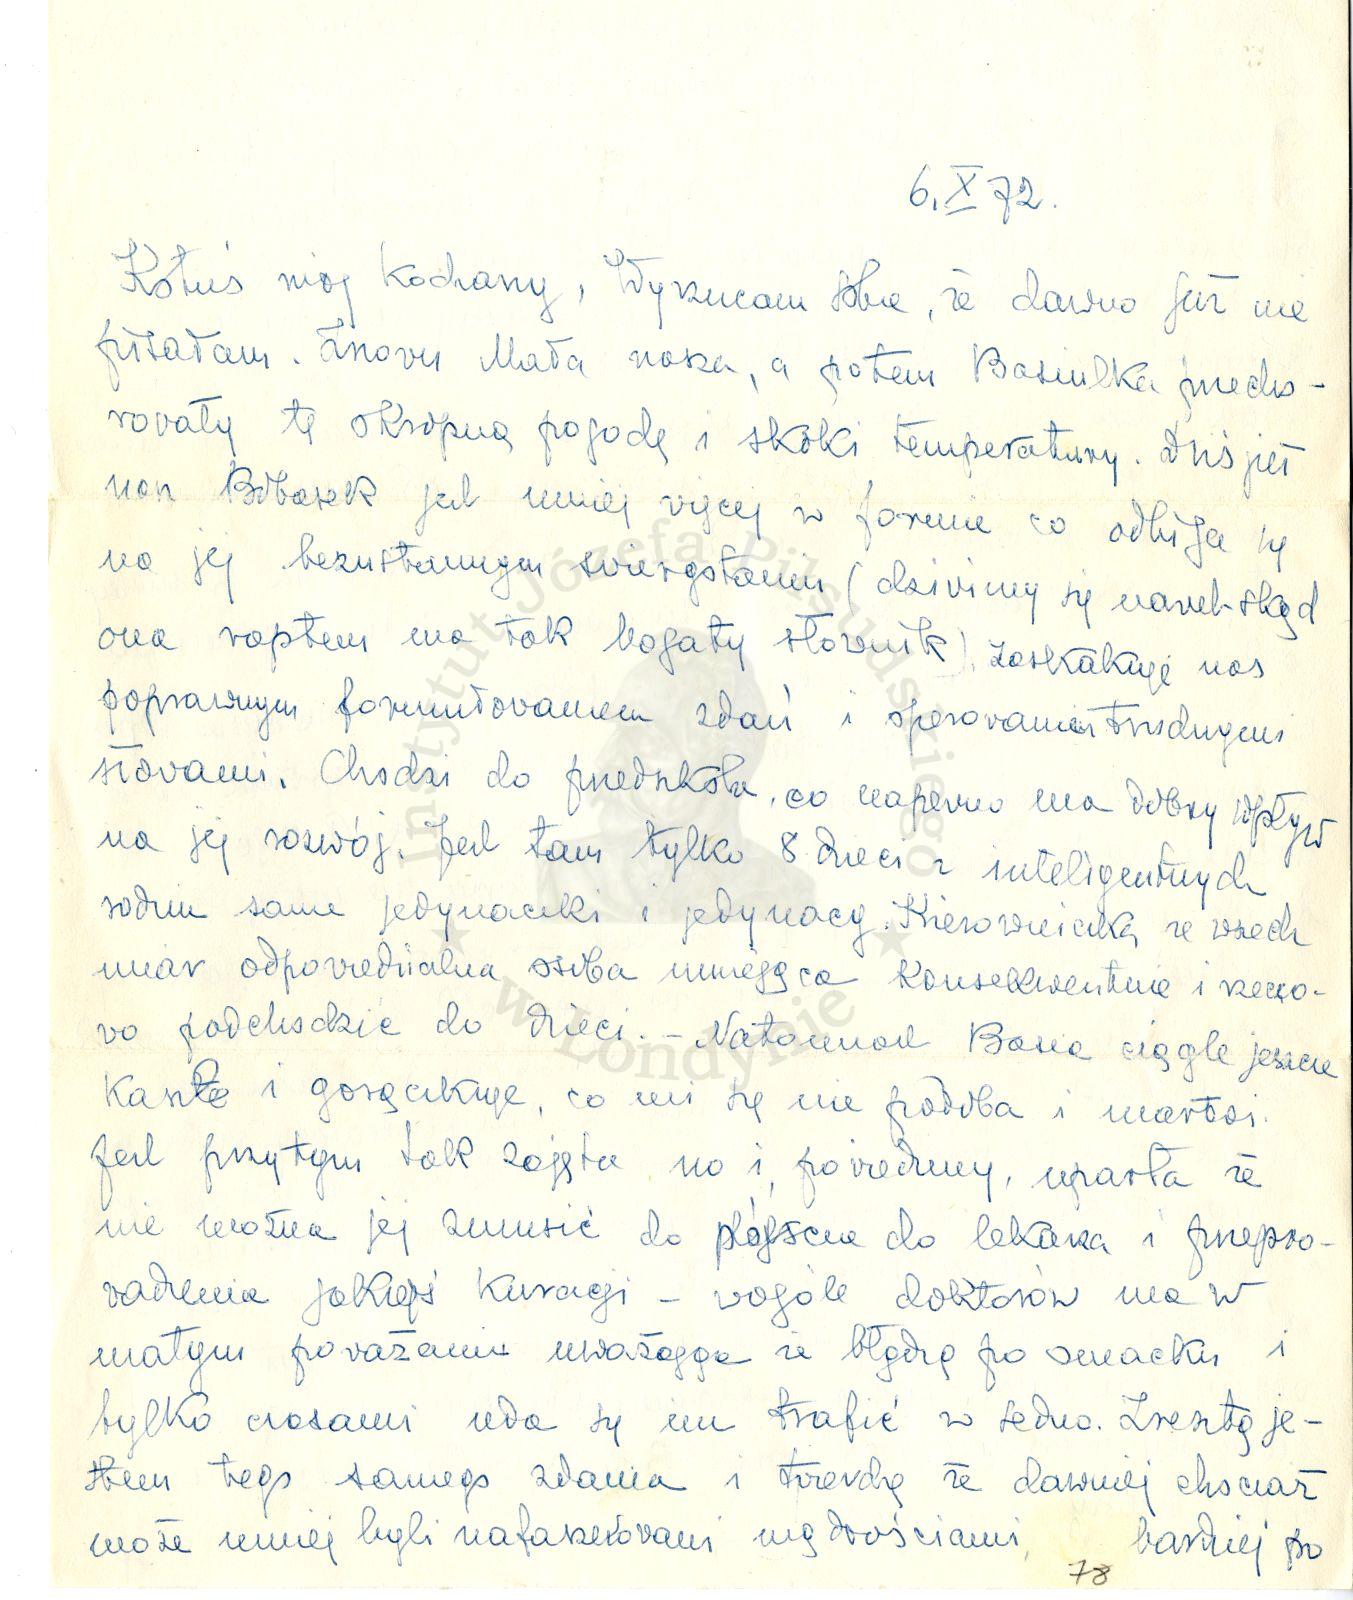 6.X 72.
Kotuś mój kochany, Wyrzucam sobie, że dawno już nie
pisałam. Znowu Mała nasza, a potem Basiulka przecho-
rowały tę okropną pogodę i skoki temperatury. Dziś już
nasz Bobasek jest mniej więcej w formie co odbija się
na jej bezustannym świergotaniu (dziwimy się nawet skąd
ona raptem ma tak bogaty słownik). Zaskakuje nas
poprawnym formułowaniem zdań i operowaniem trudnymi
słowami. Chodzi do przedszkola, co napewno ma dobry wpływ
na jej rozwój. Jest tam tylko 8 dzieci z inteligentnych
rodzin same jedynaczki i jedynacy. Kierowniczka ze wszech
miar odpowiedzialna osoba umiejąca konsekwentnie i rzeczo-
wo podchodzić do dzieci. – Natomiast Basia ciągle jeszcze
kaszle i gorączkuje, co mi się nie podoba i martwi.
Jest przytym tak zajęta no i, powiedzmy, uparta że
nie można jej zmusić do pójścia do lekarza i przepro-
wadzenia jakiejś kuracji – wogóle doktorów ma w
małym poważaniu uważając że błądzą po omacku i
tylko czasami uda się im trafić w sedno. Zresztą je-
stem tego samego zdania i twierdzę że dawniej chociaż
może mniej byli nafaszerowani mądrościami, bardziej po
78
Instytut Józefa Piłsudskiego
w Londynie